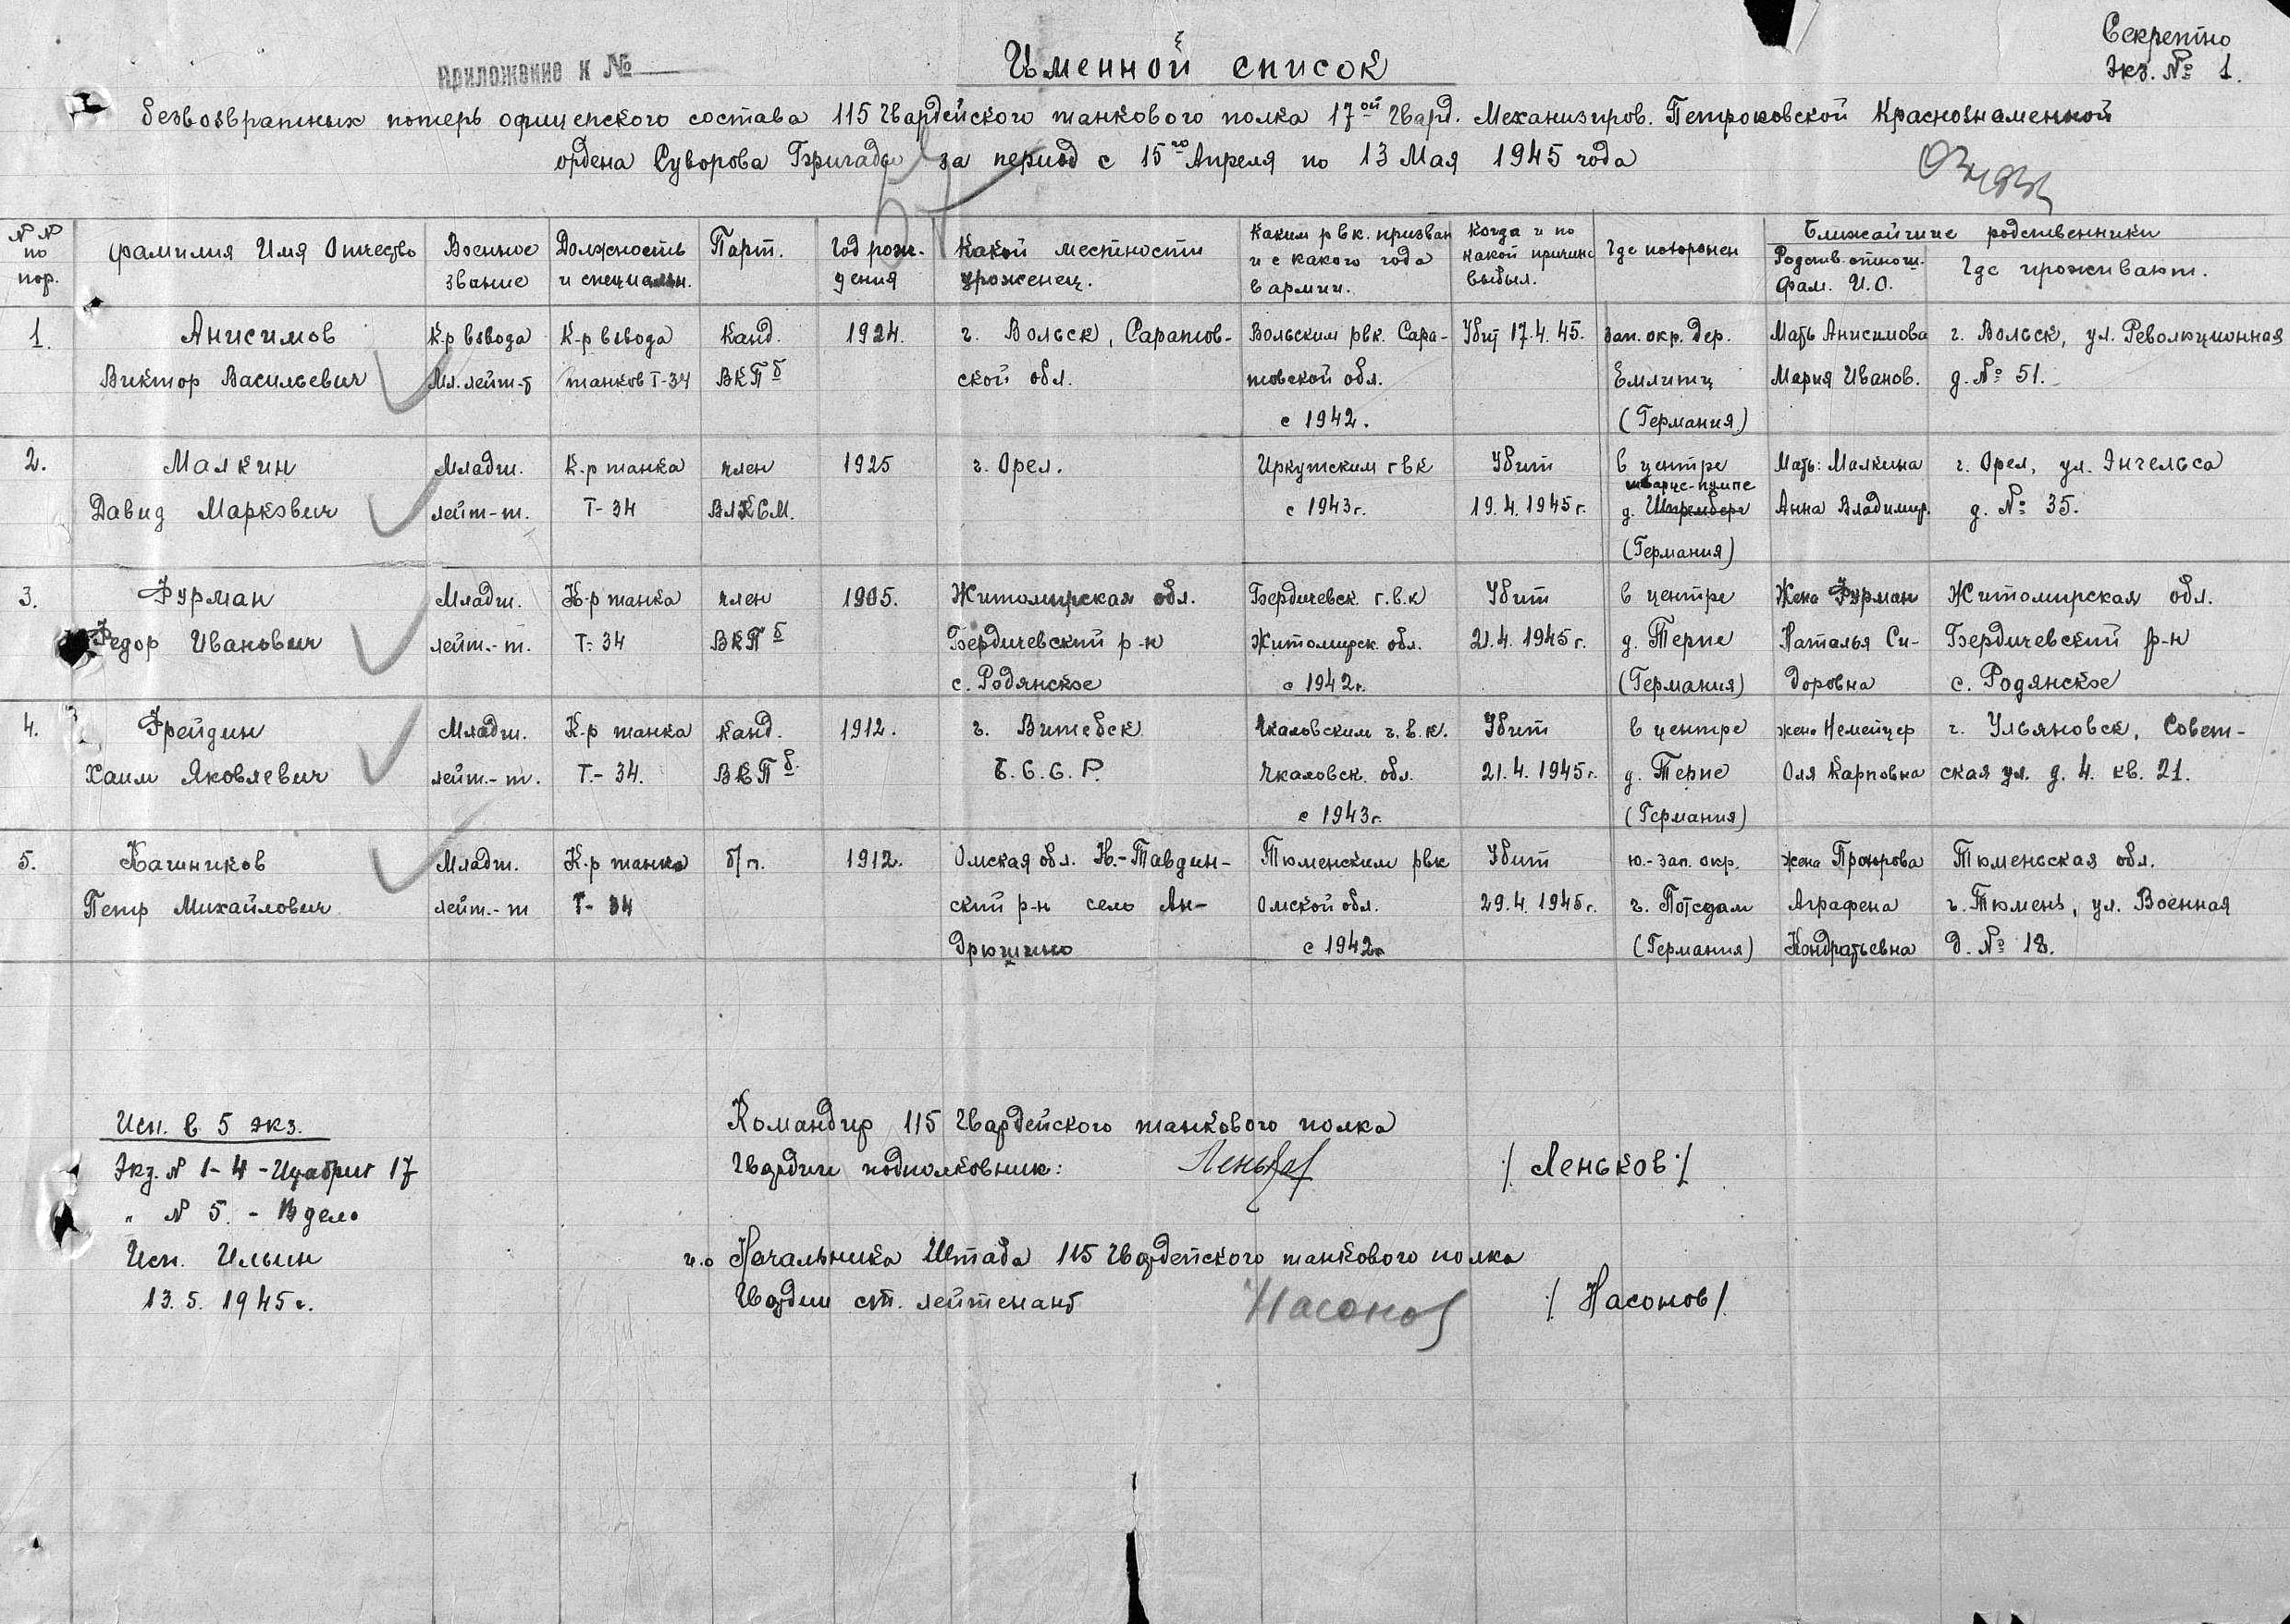 Секретно
Экз. № 1.
Приложение к №
Именной список
безвозвратных потерь офицерского состава 115 Гвардейского танкового полка 17ой Гвард. Механизиров. Петроковской Краснознаменной
ордена Суворова Бригады за период с 15го Апреля по 13 Мая 1945 года
№ № по пор.
Фамилия Имя Отчество
Военное звание
Должность и специальн.
Парт.
Год рождения
Какой местности уроженец.
Каким рвк. призван и с какого года в армии.
Когда и по какой причине выбыл.
Где похоронен
Ближайшие родственники
Родств. отнош. Фам. И.О.
Где проживают.
1. Анисимов К-р взвода К-р взвода Канд. 1924. г. Вольск, Саратов- Вольским рвк. Сара- Убит 17.4.45. Зап. окр. дер. Мать Анисимова г. Вольск, ул. Революционная
Виктор Васильевич Мл. лейт-т танков Т-34 ВКПб ской обл. товской обл. Емлитц Мария Иванов. д. № 51.
с 1942. (Германия)
2. Малкин Младш. К-р танка член 1925 г. Орел. Иркутским гвк Убит в центре Мать: Малкина г. Орел, ул. Энгельса
шварце-пумпе
Давид Маркович лейт-т. Т-34 ВЛКСМ. с 1943г. 19.4.1945г. д. Шпремберг Анна Владимир. д. № 35.
(Германия)
3. Фурман Младш. К-р танка член 1905. Житомирская обл. Бердичевск. г.в.к Убит в центре Жена Фурман Житомирская обл.
Федор Иванович лейт.-т. Т-34 ВКПб Бердичевский р-н Житомирск. обл. 21.4.1945г. д. Терпе Наталья Си- Бердичевский р-н
с. Родянское с 1942г. (Германия) доровна с. Родянское
4. Фрейдин Младш. К-р танка канд. 1912. г. Витебск Чкаловским г.в.к. Убит в центре жена Немейцер г. Ульяновск, Совет-
Хаим Яковлевич лейт.-т. Т-34. ВКПб. Б.С.С.Р. Чкаловск. обл. 21.4.1945г. д. Терпе Оля Карповна ская ул. д. 4. кв. 21.
с 1943г. (Германия)
5. Кашников Младш. К-р танка б/п. 1912. Омская обл. Н.-Тавдин- Тюменским рвк Убит ю.-зап. окр. жена Тюменьская обл.
Петр Михайлович лейт.-т Т-34 ский р-н село Ан- Омской обл. 29.4.1945г. г. Потсдам Аграфена г. Тюмень, ул. Военная
дрюшино с 1942г (Германия) Кондратьевна д. № 18.
Исп. в 5 экз.
Экз. № 1-4 - Штабриг 17
" № 5. - В дело
Исп. Ильин
13.5.1945г.
Командир 115 Гвардейского танкового полка
Гвардии подполковник: Леньков /Леньков/
и.о Начальника Штаба 115 Гвардейского танкового полка
Гвардии ст. лейтенант Насонов /Насонов/